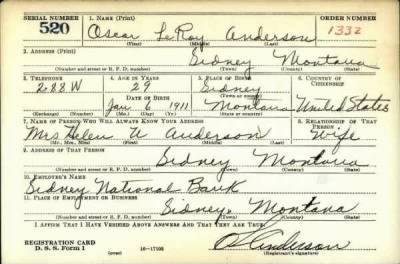 SERIAL NUMBER 1. NAME (Print) ORDER NUMBER
520 Oscar LeRoy Anderson 1332
(First) (Middle) (Last)
2. ADDRESS (Print)
Sidney Montana
(Number and street or R. F. D. number) (Town) (County) (State)
3. TELEPHONE 4. AGE IN YEARS 5. PLACE OF BIRTH 6. COUNTRY OF CITIZENSHIP
288W 29 Sidney
DATE OF BIRTH (Town or county)
Jan 6 1911 Montana United States
(Exchange) (Number) (Mo.) (Day) (Yr.) (State or country)
7. NAME OF PERSON WHO WILL ALWAYS KNOW YOUR ADDRESS 8. RELATIONSHIP OF THAT PERSON
Mrs Helen Anderson Wife
(Mr., Mrs., Miss) (First) (Middle) (Last)
9. ADDRESS OF THAT PERSON
Sidney Montana
(Number and street or R. F. D. number) (Town) (County) (State)
10. EMPLOYER'S NAME
Sidney National Bank
11. PLACE OF EMPLOYMENT OR BUSINESS
Sidney Montana
(Number and street or R. F. D. number) (Town) (County) (State)
I AFFIRM THAT I HAVE VERIFIED ABOVE ANSWERS AND THAT THEY ARE TRUE.
REGISTRATION CARD Anderson
D. S. S. Form 1 (over) 16-17105 (Registrant's signature)